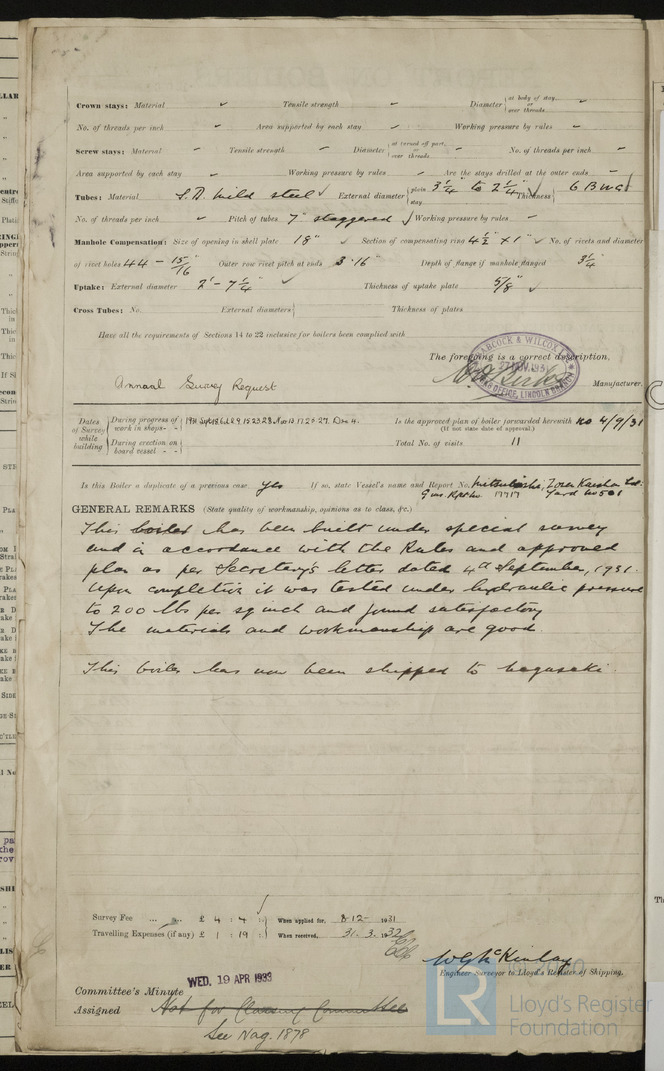 Crown stays: Material ✓ Tensile strength ✓ Diameter { at body of stay, or over threads ✓
No. of threads per inch ✓ Area supported by each stay ✓ Working pressure by rules ✓
Screw stays: Material ✓ Tensile strength ✓ Diameter { at turned off part, or over threads ✓ No. of threads per inch ✓
Area supported by each stay ✓ Working pressure by rules ✓ Are the stays drilled at the outer ends ✓
Tubes: Material S.D. Mild steel ✓ External diameter { plain stay 3 1/4" to 2 1/4" ✓ Thickness 6 BWG
No. of threads per inch ✓ Pitch of tubes 7" staggered ✓ Working pressure by rules ✓
Manhole Compensation: Size of opening in shell plate 18" ✓ Section of compensating ring 4 1/2" x 1" ✓ No. of rivets and diameter
of rivet holes 44 - 15/16" Outer row rivet pitch at ends 3.16" Depth of flange if manhole flanged 3 1/4"
Uptake: External diameter 2' - 7 1/4" ✓ Thickness of uptake plate 5/8" ✓
Cross Tubes: No. External diameters { Thickness of plates
Have all the requirements of Sections 14 to 22 inclusive for boilers been complied with
The foregoing is a correct description,
BABCOCK & WILCOX LTD
27 NOV 1931
OFFICE, LINCOLN BRANCH
Manufacturer.
Annual Survey Request
Dates of Survey while building
During progress of work in shops - - 1931 Sept 18 Oct 2.9.15.23.28. Nov 10.17.20.27. Dec 4.
During erection on board vessel - -
Is the approved plan of boiler forwarded herewith no 4/9/31
(If not state date of approval.)
Total No. of visits 11
Is this Boiler a duplicate of a previous case yes If so, state Vessel's name and Report No. Mitsubishi, Zosen Kaisha Ltd.
Gws. Rpt No 17717 Yard No 501
GENERAL REMARKS (State quality of workmanship, opinions as to class, &c.)
This boiler has been built under special survey
and in accordance with the Rules and approved
plan as per Secretary's letter dated 4th September, 1931.
Upon completion it was tested under hydraulic pressure
to 200 lbs per sq inch and found satisfactory
The materials and workmanship are good.
This boiler has now been shipped to Nagasaki.
Survey Fee ... ... £ 4 : 4 : When applied for, 8-12- 1931
Travelling Expenses (if any) £ 1 : 19 : When received, 31. 3. 1932
W G McKinlay
Engineer Surveyor to Lloyd's Register of Shipping.
Committee's Minute WED. 19 APR 1933
Assigned Not for Classing Committee
See Nag. 1878
LR
Lloyd's Register
Foundation